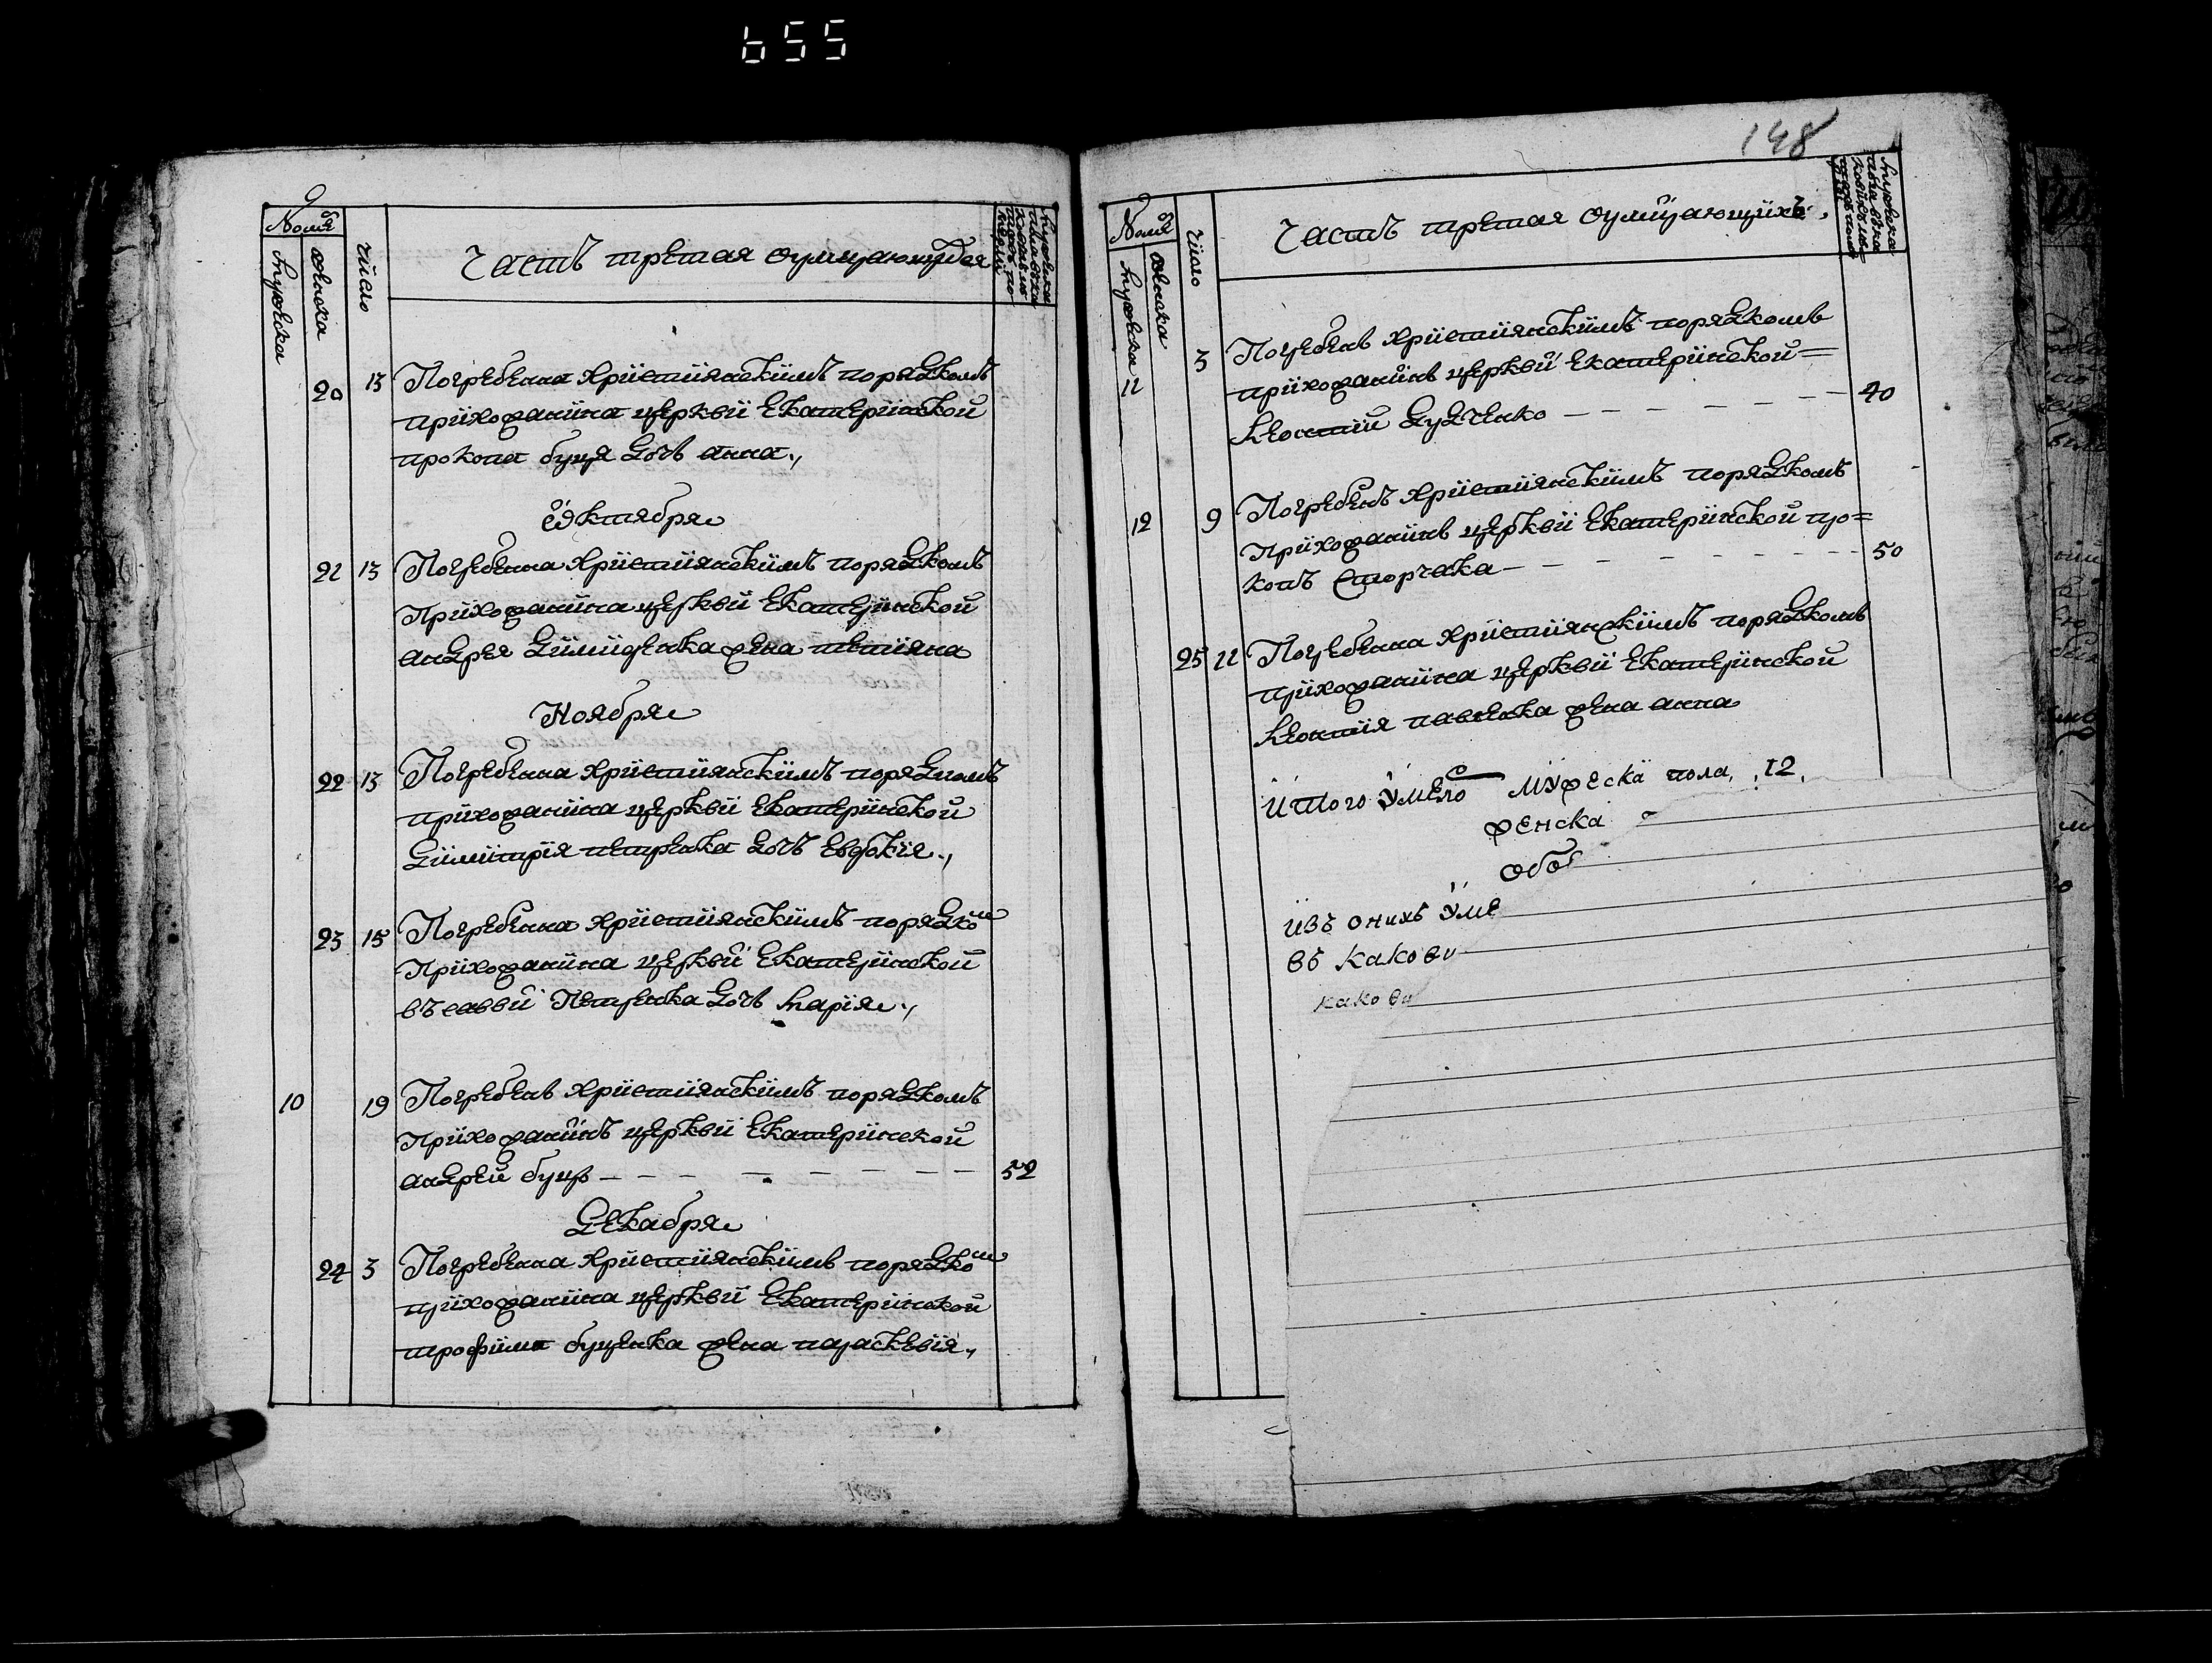 655
Часть третая оумирающихъ
числο
женска
20 13 Погребенна християнскимъ порядкомъ
прихожанина церкви Екатеринской
прокопа буця дочъ анна.,
Октябра
21 13 Погребенна християнскимъ порядкомъ
Прихожанина церкви Екатеринской
андрея жена тетияна
Ноября
22 13 Погребенна християнскимъ порядкомъ
прихожанина церкви Екатеринской
димитрїя петренка дочъ Евдокїя.,
23 15 Погребенна християнскимъ порядком
Прихожанина церкви Екатеринской
Петренка дочъ марїя.,
10 19 Погребенъ християнскимъ порядкомъ
Прихожанинъ церкви Екатеринской
андрей буць 52
Декабря
24 3 Погребенна християнскимъ порядком
прихожанина церкви Екатеринской
трофима буценка жена параскевїя.,
148
Часть третая оумирающихъ.
число
женска
11 3 Погребенъ християнскимъ порядкомъ
прихожанинъ церкви Екатеринской=
леонтий дудченко 40
12 9 Погребенъ християнскимъ порядкомъ
Прихожанинъ церкви Екатеринской про=
копъ сторчака 50
25 11 Погребенна християнскимъ порядкомъ
прихожанина церкви Екатеринской
леонтїя павленка жена анна
итого умерло мужеска пола, 12,
женска
обо
изъ онихъ уме
въ какови
какови